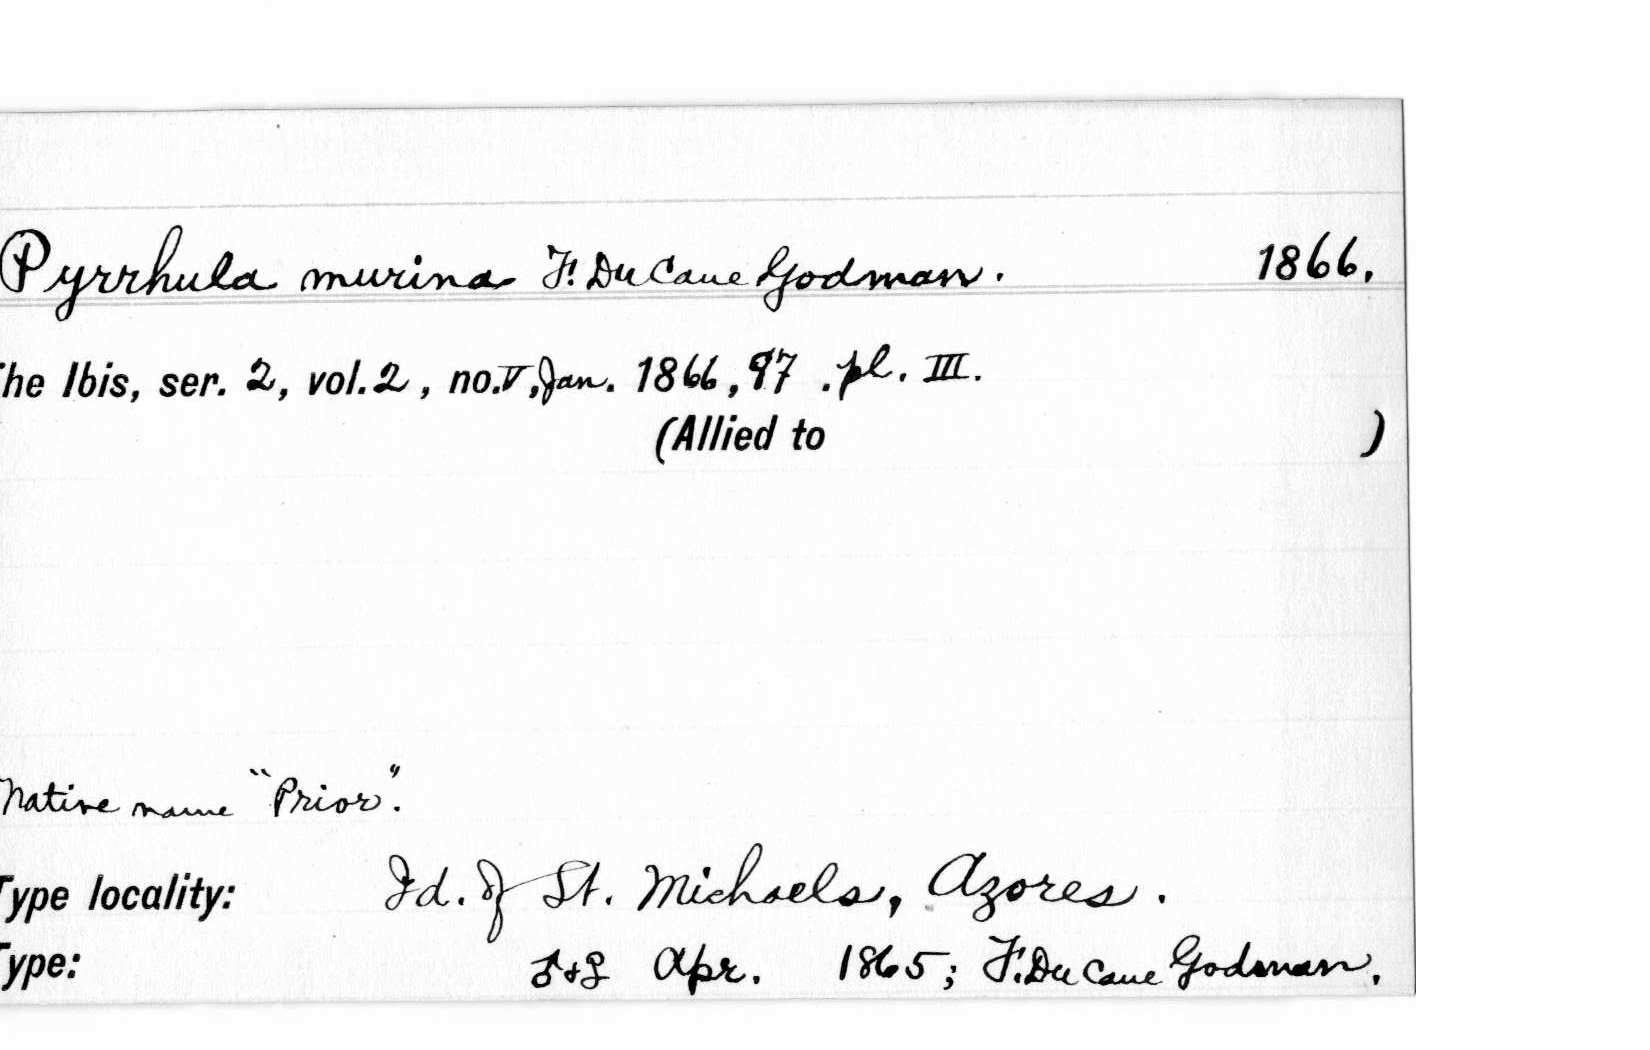 Pyrrhula murina F. DuCane Godman. 1866.
The Ibis, ser. 2, vol. 2, no. V, Jan. 1866, 97. pl. III.
(Allied to )
Native name "Prior".
Type locality: Id. of St. Michaels, Azores.
Type: ♂ & ♀ Apr. 1865; F. DuCane Godman.